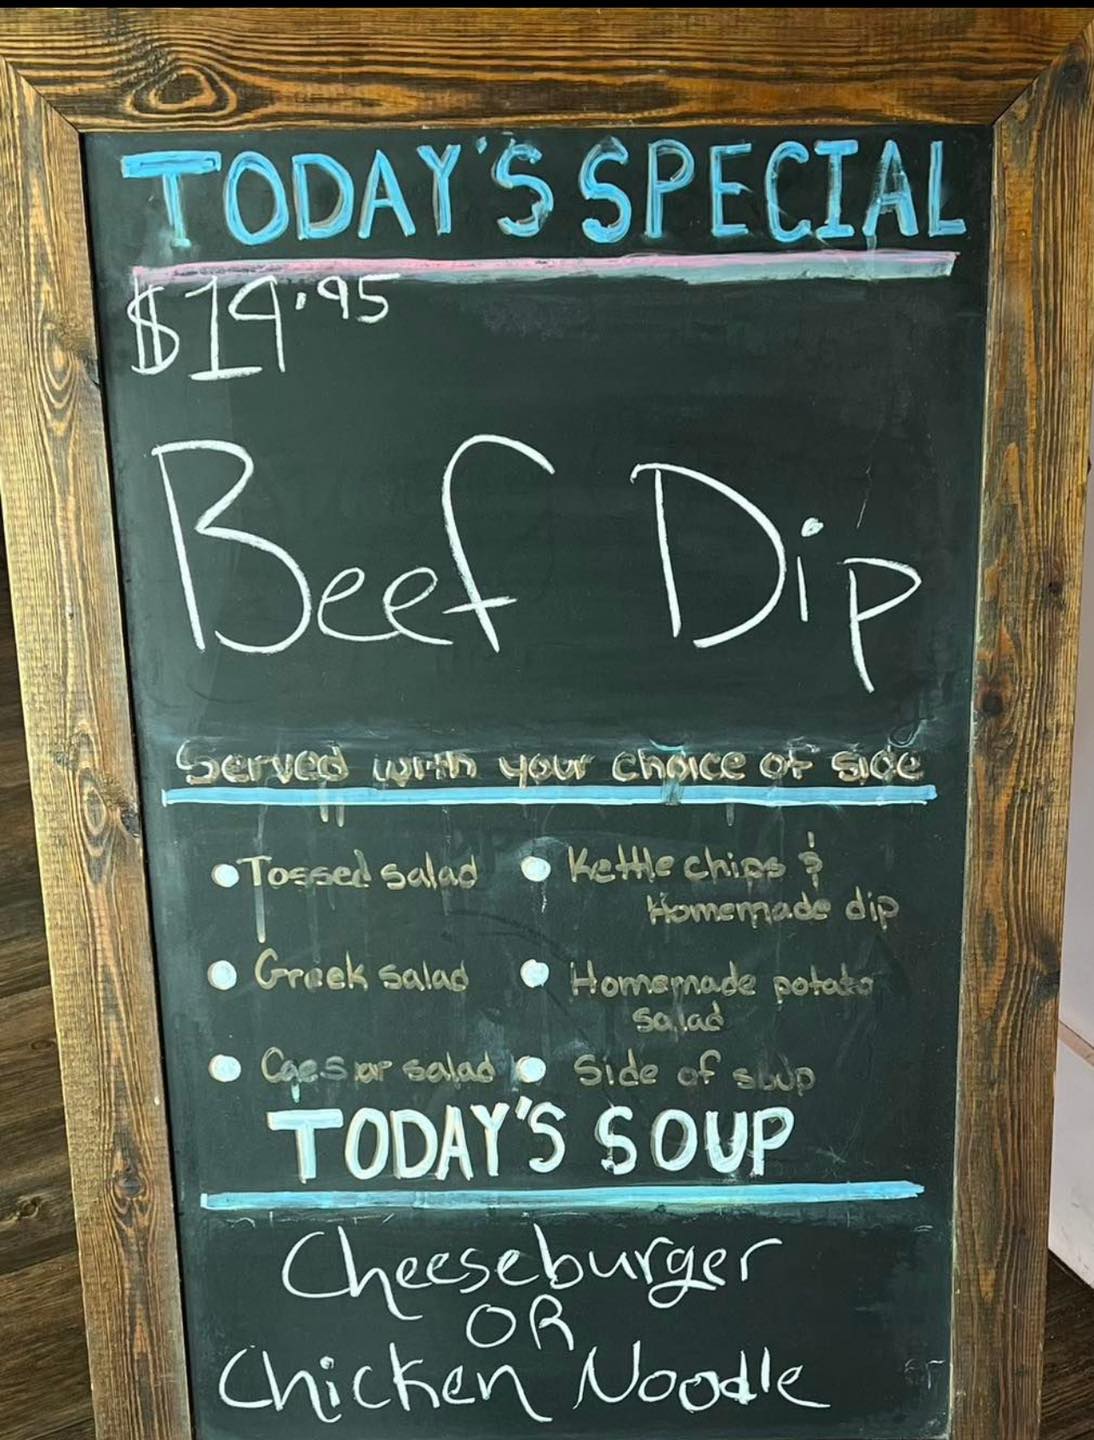 TODAY'S SPECIAL
$14.95
Beef Dip
Served with your choice of side
• Tossed salad
• Kettle chips &
Homemade dip
• Greek salad
• Homemade potato
salad
• Caesar salad
• Side of soup
TODAY'S SOUP
Cheeseburger
OR
Chicken Noodle